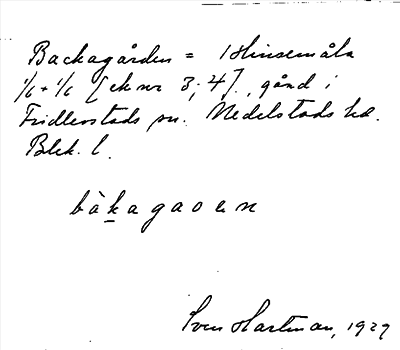 Backagården = Hinsemåla
1/6 + 1/6 [ek nr 3; 4]., gård i
Fridlevstads sn. Medelstads hd.
Blek. l.
bàkagaoen
Sven Hartman, 1929